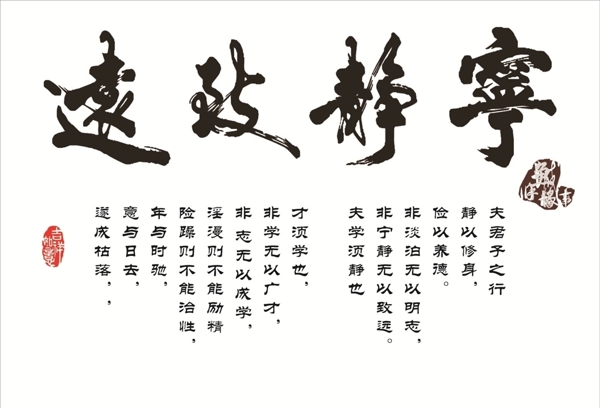 寧静致遠
夫君子之行
静以修身，
俭以养德。
非淡泊无以明志，
非宁静无以致远。
夫学须静也
才须学也，
非学无以广才，
非志无以成学，
淫漫则不能励精
险躁则不能治性，
年与时驰，
意与日去，
遂成枯落，，
吉祥如意